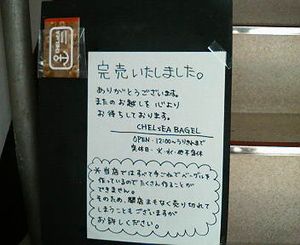 完売いたしました。
ありがとうございます。
またのお越しを心より
お待ちしております。
CHELSEA BAGEL
OPEN・12:00~うりきれまで
定休日・火・水・
※当店ではすべて手ごねでベーグルを
作っているのでたくさん作ることが
できません。
そのため、開店まもなく売り切れて
しまうこともございますが
お許しください。